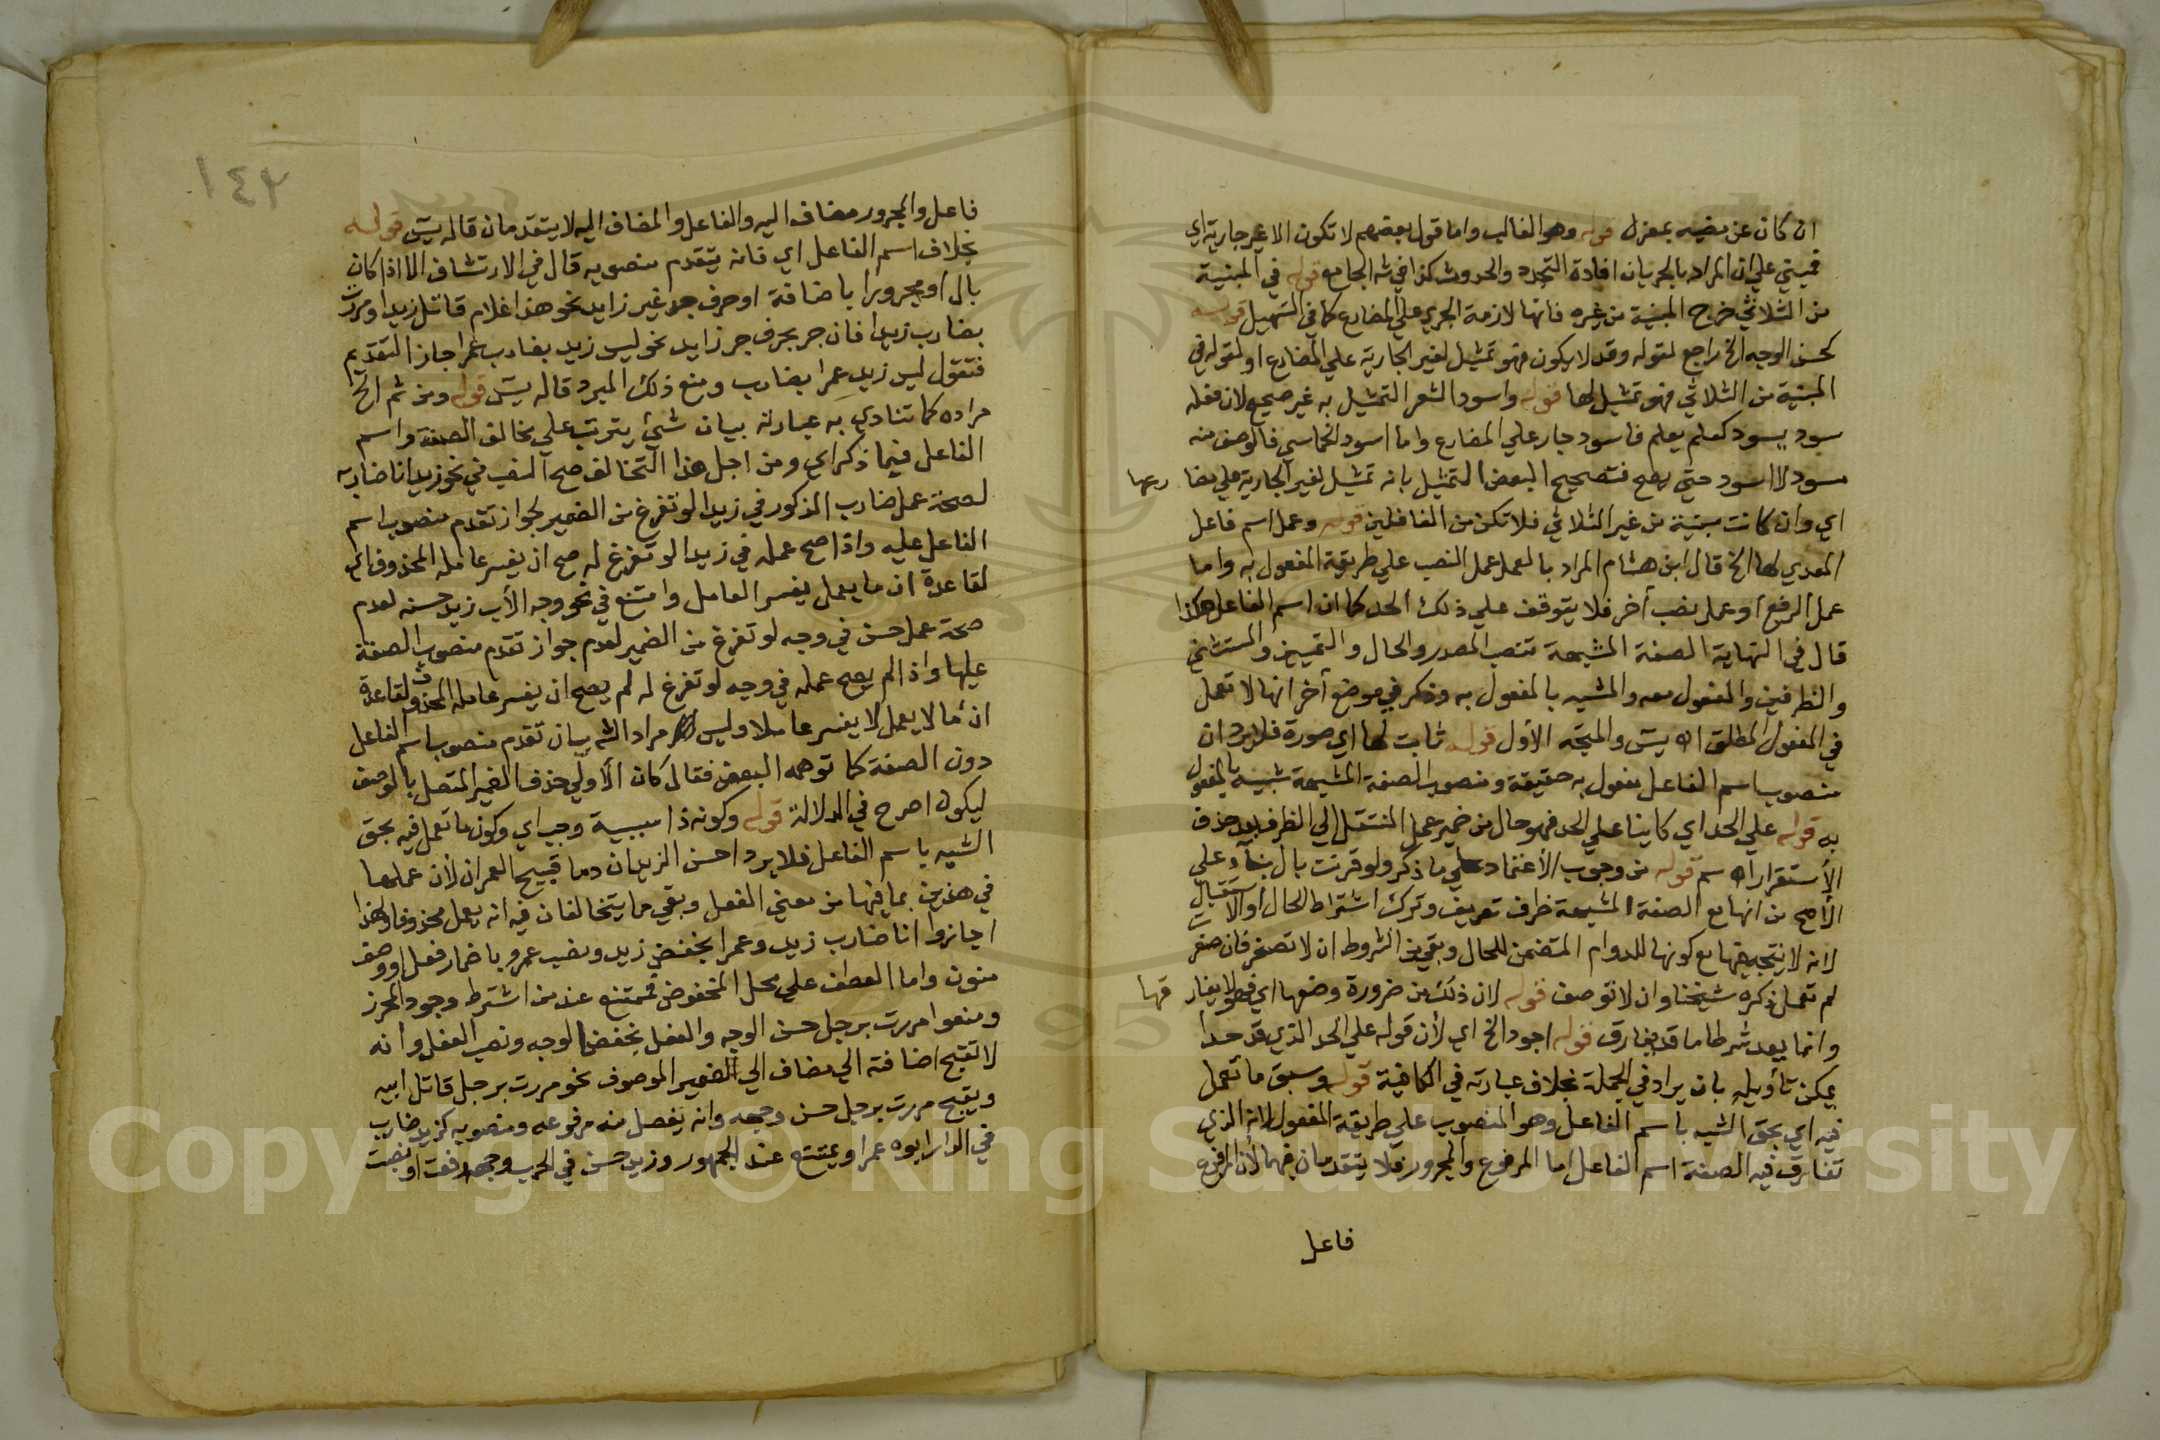 ان كان عن مضيه بمعزل قوله وهو الغالب واما قول بعضهم لا تكون الا غير جارية اي
فمبني علي ان المراد بالجريان افادة التجدد والحدوث كذا في شه الجامع قوله في المبنية
من الثلاثي خرج المبنية من غيره فانها لازمة الجري علي المضارع كما في التسهيل قوله
كحسن الوجه الخ راجع لقوله وقد لا يكون فهو تمثيل لغير الجارية علي المضارع او لقوله في
المبنية من الثلاثي فهو تمثيل لها قوله واسود الشعر التمثيل به غير صحيح لان فعله
سود يسود كعلم يعلم فاسود جار علي المضارع واما اسود الخماسي فالوصف منه
مسود لا اسود حتي يصح فتصحيح البعض التمثيل بانه تمثيل لغير الجارية علي مضا رعها
اي وان كانت مبنية من غير الثلاثي فلا تكن من الغافلين قوله وعمل اسم فاعل
المعدي لها الخ قال ابن هشام المراد بالعمل عمل النصب علي طريقة المفعول به واما
عمل الرفع او عمل نصب أخر فلا يتوقف علي ذلك الحد كما ان اسم الفاعل هكذا
قال في النهاية الصفة المشبهة تنصب المصدر والحال والتمييز والمستثني
والظرفين والمفعول معه والمشبه بالمفعول به وذكر في موضع أخر انها لا تعمل
في المفعول المطلق اه يس والمتجه الأول قوله ثابت لها اي صورة فلا يرد ان
منصوب اسم الفاعل مفعول به حقيقة ومنصوب الصفة المشبهة شبيه بالمفعول
به قوله علي الحد اي كاينا علي الحد فهو حال من ضمير عمل المنتقل الي الظرف بعد حذف
الأستقرار اه سم قوله من وجوب الأعتماد علي ما ذكر ولو قرنت بال بناء علي
الأصح من انها مع الصفة المشبهة حرف تعريف وترك اشتراط الحال أو الاستقبال
لانه لا يتجه فيها مع كونها للدوام المتضمن للحال وبقي من الشروط ان لا تصغر فان صغر
لم تعمل ذكره شيخنا وان لا توصف قوله لان ذلك من ضرورة وضعها اي فهو لا يفار قها
وانما يعد شرطا ما قد يفارق قوله اجود الخ اي لأن قوله علي الحد الذي قد حدا
يمكن تأويله بان يراد في الجملة بخلاف عبارته في الكافية قوله وسبق ما تعمل
فيه اي بحق الشبه باسم الفاعل وهو المنصوب علي طريقة المفعول لانه الذي
تفارق فيه الصفة اسم الفاعل اما المرفوع والمجرور فلا يتقدمان فيهما لأن المرفوع
فاعل
١٤٢
فاعل والمجرور مضاف اليه والفاعل والمضاف اليه لا يتقدمان قاله يس قوله
بخلاف اسم الفاعل اي فانه يتقدم منصوبه قال في الارتشاف الا اذا كان
بال او مجرورا باضافة او حرف جر غير زايد نحو هذا غلام قاتل زيدا ومررت
بضارب زيدا فان جر بحرف جر زايد نحو ليس زيد بضارب عمرا جاز التقديم
فتقول ليس زيد عمرا بضارب ومنع ذلك المبرد قاله يس قوله ومن ثم الخ
مراده كما تنادي به عبارته بيان شئ يترتب علي تخالف الصفة واسم
الفاعل فيما ذكر اي ومن اجل هذا التخالف صح النصب في نحو زيدا نا ضاربه
لصحة عمل ضارب المذكور في زيدا لو تفرغ من الضمير لجواز تقدم منصوب اسم
الفاعل عليه واذا صح عمله في زيدا لو تفرغ له صح ان يفسر عامله المحذوف اي
لقاعدة ان ما يعمل يفسر العامل وامتنع في نحو وجه الأب زيد حسنه لعدم
صحة عمل حسن في وجه لو تفرغ من الضمير لعدم جواز تقدم منصوب الصفة
عليها واذا لم يصح عمله في وجه لو تفرغ له لم يصح ان يفسر عامله المحذوف لقاعدة
ان ما لا يعمل لا يفسر عاملا وليس مراد الشه بيان تقدم منصوب اسم الفاعل
دون الصفة كما توهمه البعض فقال كان الأولي حذف الضمير المتصل بالوصف
ليكون اصرح في الدلالة قوله وكونه ذا سببية وجب اي وكون ما تعمل فيه بحق
الشبه باسم الفاعل فلا يرد احسن الزيدان وما قبيح العمران لأن عملها
في هذين بما فيها من معني الفعل وبقي مما يتخالفان فيه انه يعمل محذوفا ولهذا
اجازوا انا ضارب زيد وعمرا بخفض زيد ونصب عمرو باضمار فعل او وصف
منون واما العطف علي محل المخفوض فممتنع عند من اشترط وجود المحرز
ومنعوا مررت برجل حسن الوجه والفعل بخفض الوجه ونصب الفعل وأنه
لا تقبح اضافته الي مضاف الي الضمير الموصوف نحو مررت برجل قاتل ابيه
ويقبح مررت برجل حسن وجهه وانه يفصل منه مرفوعه ومنصوبه كزيد ضارب
في الدار ابوه عمرا ويمتنع عند الجمهور زيد حسن في الحرب وجهه رفعت او نصبت
Copyright © King Saud University